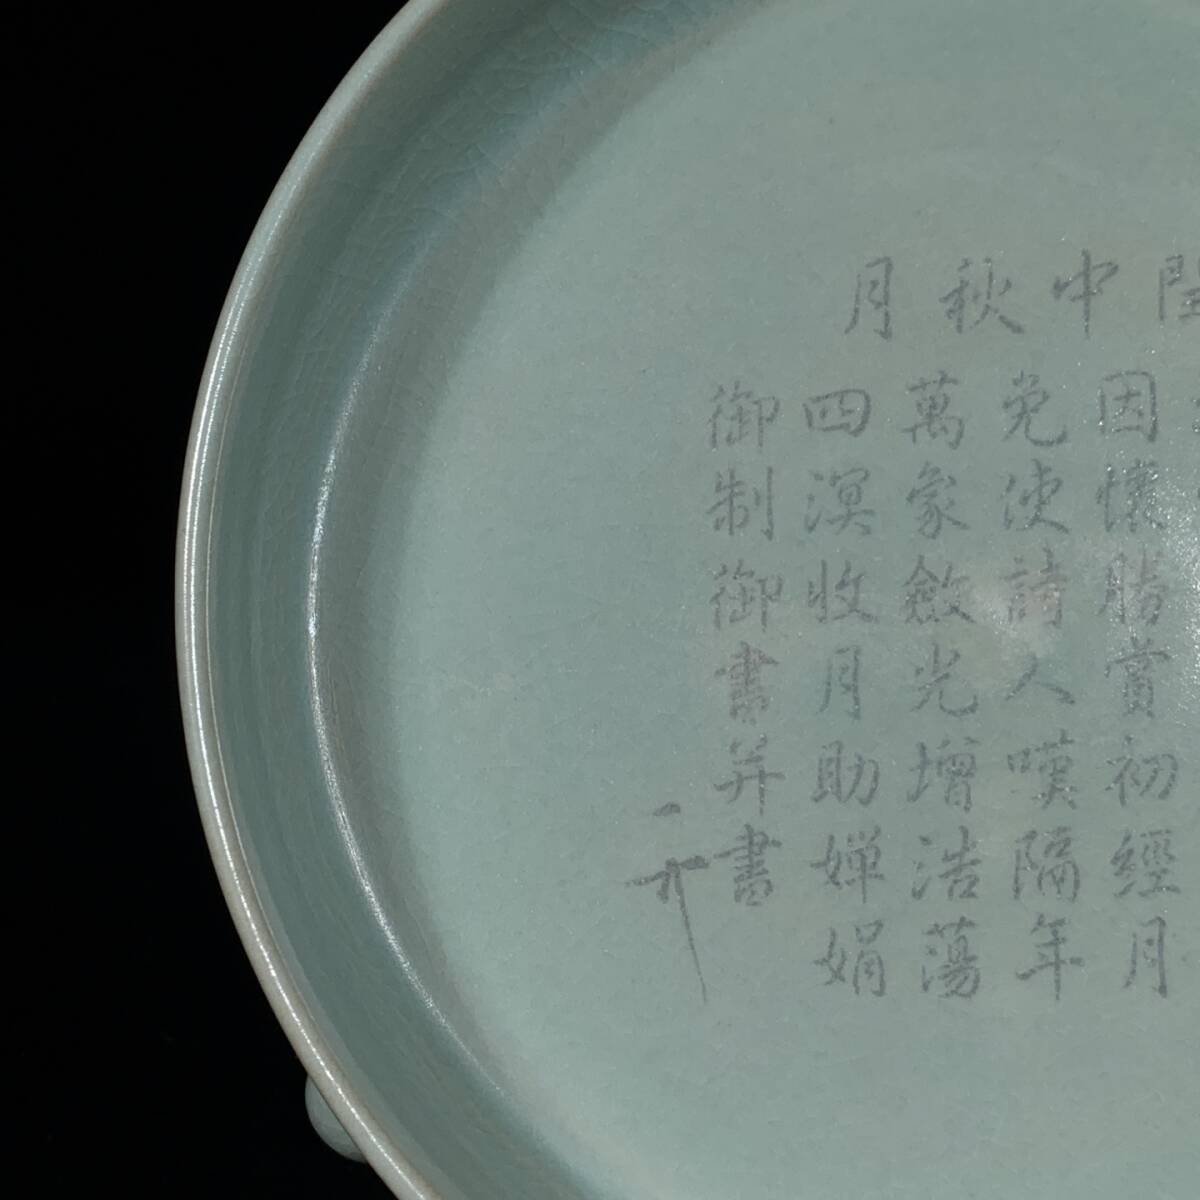 閏中秋月
因懷勝賞初經月
免使詩人嘆隔年
萬象斂光增浩蕩
四溟收月助嬋娟
御制御書并書